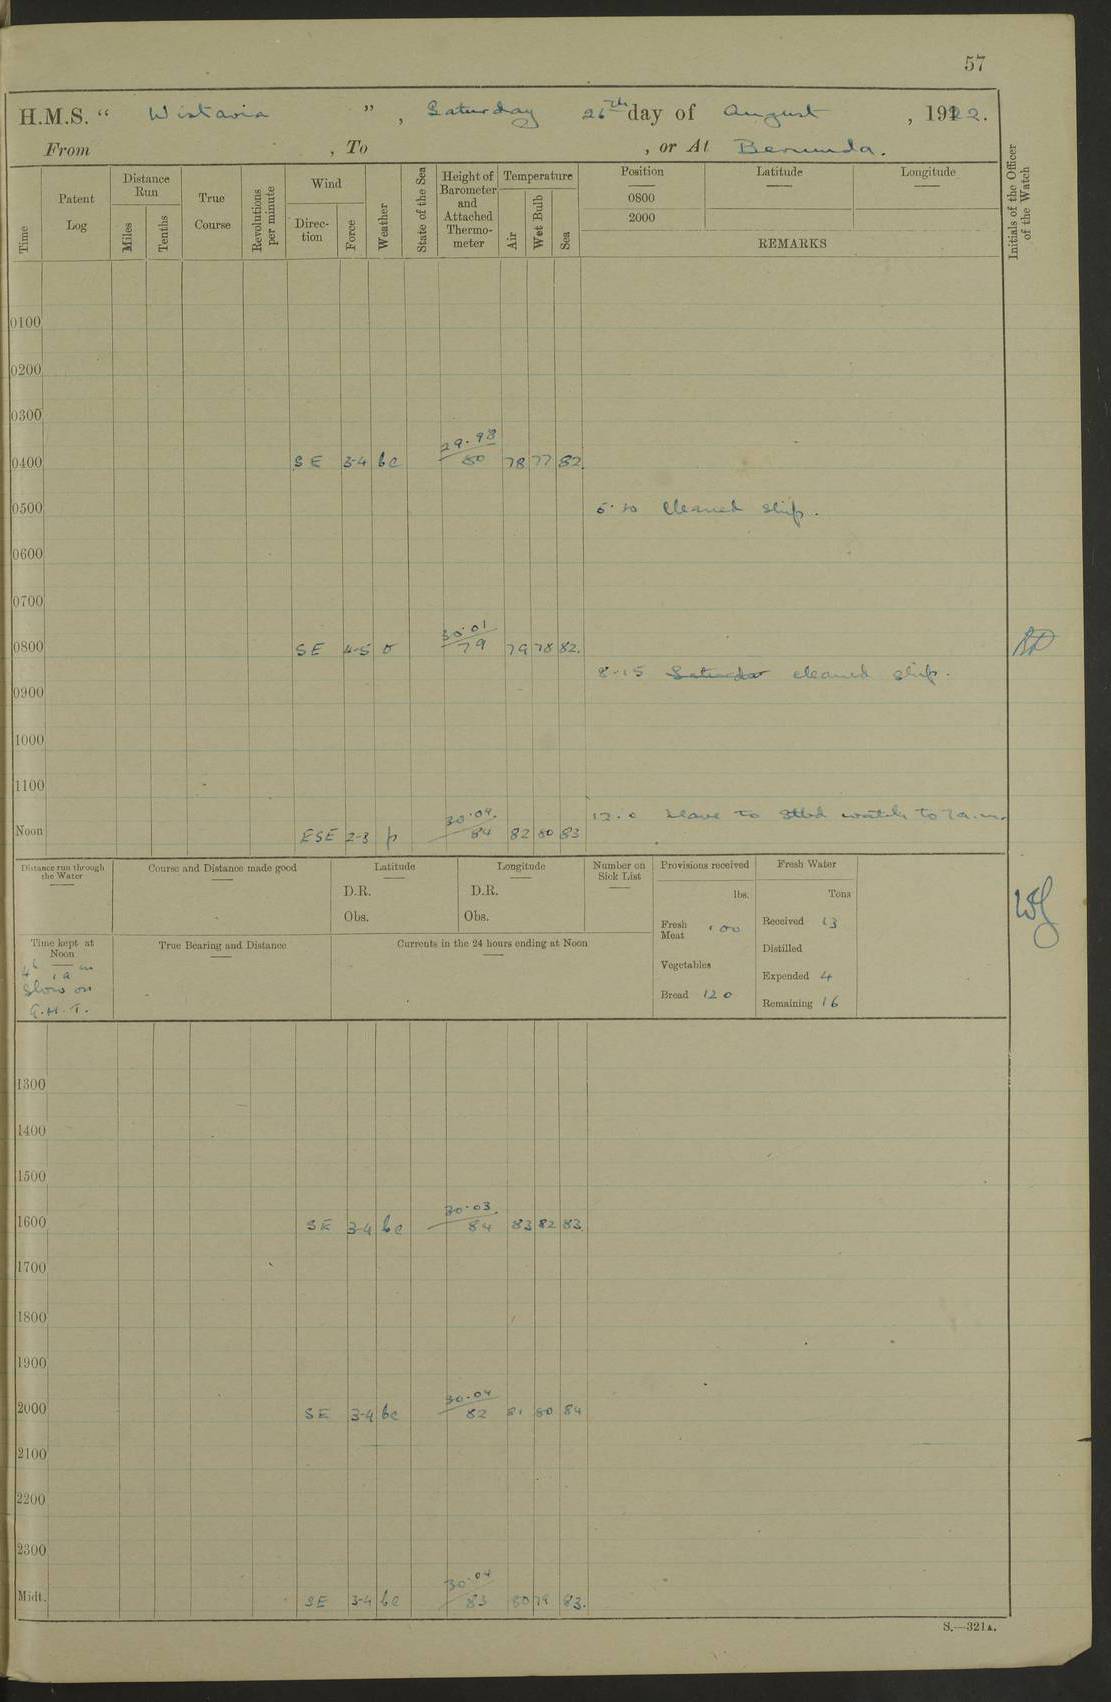 57
H.M.S. “ Wistaria ” , Saturday 26th day of August , 1922.
From , To , or At Bermuda.
Time
Patent Log
Distance Run
Miles
Tenths
True Course
Revolutions per minute
Wind
Direc- tion
Force
Weather
State of the Sea
Height of Barometer and Attached Thermo- meter
Temperature
Air
Wet Bulb
Sea
Position
0800
2000
Latitude
Longitude
REMARKS
Initials of the Officer of the Watch
0100
0200
0300
29.98
0400 SE 3-4 bc 80 78 77 82.
0500 5.30 Cleaned ship.
0600
0700
30.01
0800 SE 4-5 o 79 79 78 82.
8.15 Saturday cleaned ship.
0900
1000
1100
30.04.
12.0 Leave to Stbd watch to 7 a.m.
Noon ESE 2-3 p 84 82 80 83
Distance run through the Water
Course and Distance made good
Latitude
D.R.
Obs.
Longitude
D.R.
Obs.
Number on Sick List
Provisions received
lbs.
Fresh Meat 100
Vegetables
Bread 120
Fresh Water
Tons
Received 13
Distilled
Expended 4
Remaining 16
Time kept at Noon
4h 19m
Slow on
G.M.T.
True Bearing and Distance
Currents in the 24 hours ending at Noon
1300
1400
1500
30.03.
1600 SE 3-4 bc 84 83 82 83.
1700
1800
1900
30.04
2000 SE 3-4 bc 82 81 80 84
2100
2200
2300
30.04
Midt. SE 3-4 bc 83 80 79 83.
S.—321A.